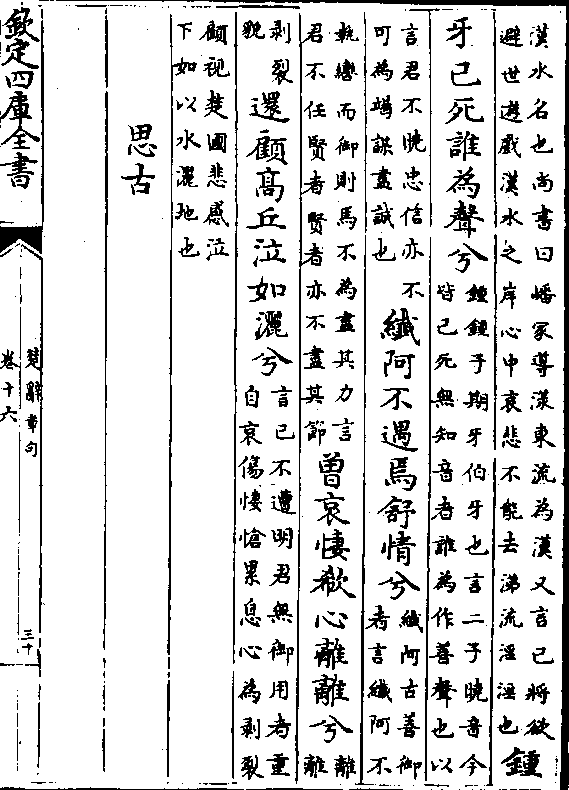 漢水名也尚書曰嶓冢導漾東流為漢又言己將欲
避世遊戲漢水之岸心中哀悲不能去涕流滛滛也
鍾
牙已死誰為聲兮
鍾鍾子期牙伯牙也言二子曉音今
皆已死無知音者誰為作善聲也以
言君不曉忠信亦不
可為竭謀盡誠也
纖阿不遇焉舒情兮
纖阿古善御
者言纖阿不
執轡而御則馬不為盡其力言
君不任賢者賢者亦不盡其節
曾哀悽欷心離離兮
離
離
剥裂
貌
還顧髙丘泣如灑兮
言己不遭明君無御用者重
自哀傷悽愴累息心為剥裂
顧視楚國悲感泣
下如以水灑地也
思古
欽定四庫全書
楚辭章句
卷十六
三十